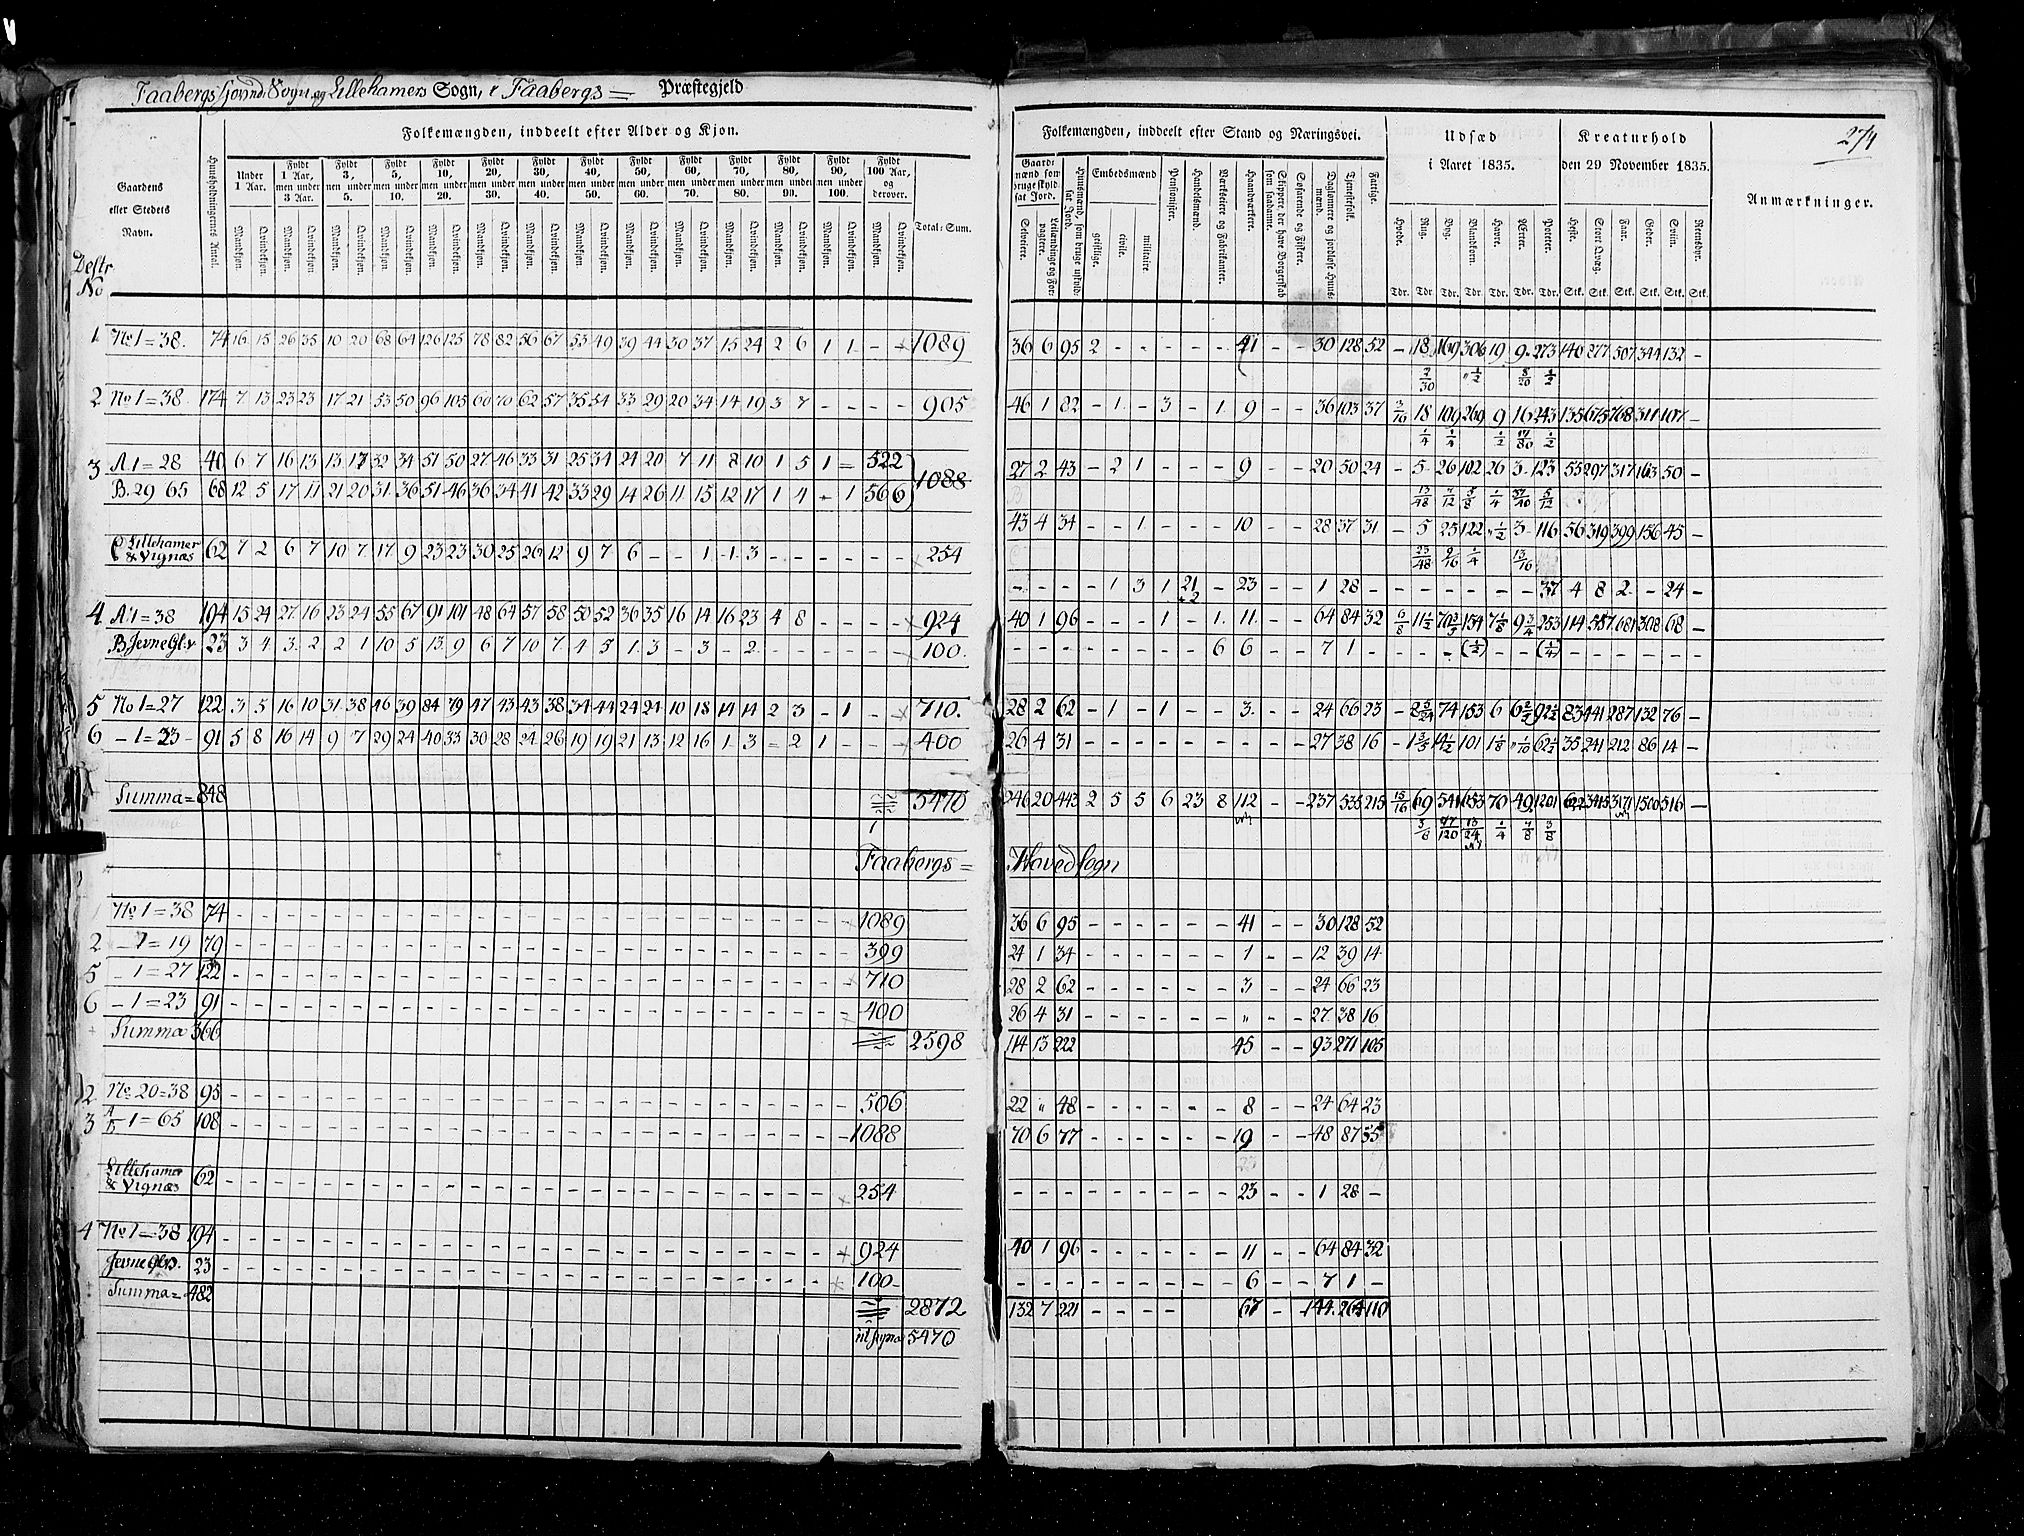 Faabergs Hoved Sogn og Lillehamers Sogn, i Faabergs = Præstegjeld
274
Folkemængden, inddeelt efter Alder og Kjøn.
Gaardens eller Stedets Navn.
Huusholdningernes Antal.
Under 1 Aar.
Fyldt 1 Aar, men under 3 Aar.
Fyldt 3, men under 5.
Fyldt 5, men under 10.
Fyldt 10, men under 20.
Fyldt 20, men under 30.
Fyldt 30, men under 40.
Fyldt 40, men under 50.
Fyldt 50, men under 60.
Fyldt 60, men under 70.
Fyldt 70, men under 80.
Fyldt 80, men under 90.
Fyldt 90, men under 100.
Fyldt 100 Aar, og derover.
Mandkjøn. Qvindekjøn.
Total-Sum.
Destr No
1 No 1 = 38. 74 16 15 26 35 10 20 68 64 126 125 78 82 56 67 53 49 39 44 30 37 15 24 2 6 1 1 - - 1089
2 No 1 = 38. 174 7 13 23 23 17 21 53 50 96 105 60 70 62 57 35 54 33 29 20 34 14 19 3 7 - - - - 905
3 A 1 = 28 40 6 7 16 13 13 17 32 34 51 50 27 46 33 31 25 34 24 20 7 11 8 10 1 5 1 - 522
B. 29 65 68 12 5 17 11 21 20 31 36 51 46 36 34 41 42 33 29 14 26 11 15 12 17 1 4 - 1 566 1088
C Lillehamer & Vignæs 62 7 2 6 7 10 7 17 9 23 23 30 25 26 12 9 7 6 - - 1 1 3 254
4 A 1 = 38 194 15 24 27 16 23 24 55 67 91 101 48 64 57 58 50 52 36 35 16 14 16 23 4 8 - - - - 924
B. Jevne Gl.v 23 3 4 3 2 2 1 10 5 13 9 6 7 10 7 4 5 1 3 - 3 - 2 - - - - - - 100
5 No 1 = 27 122 3 5 16 10 31 38 46 39 84 79 47 43 43 38 34 44 24 24 10 18 14 14 2 3 - 1 - - 710.
6 - 1 = 23 - 91 5 8 16 14 9 7 29 24 40 33 30 28 24 26 19 19 21 13 12 16 1 3 - 2 1 - - - 400
Summa = 848 5470
Faabergs =
1 No 1 = 38 74 1089
2 - 1 = 19 79 399
5 - 1 = 27 122 710
6 - 1 = 23 91 400
Summa 366 2598
2 No 20 = 38 95 506
3 A B - 1 = 65 108 1088
Lillehamer & Vignæs 62 254
4 No 1 = 38 194 924
Jevne Gl.v. 23 100
Summa = 482 2872
5470
Folkemængden, inddeelt efter Stand og Næringsvei.
Gaardmænd som bruge skyldsat Jord.
Selveiere.
Leilændinge og Forpagtere.
Huusmænd, som bruge uskyldsat Jord.
Embedsmænd
geistlige.
civile.
militaire.
Pensionister.
Handelsmænd.
Værkseiere og Fabrikanter.
Haandværkere.
Skippere, der have Borgerskab som saadanne.
Søfarende og Fiskere.
Daglønnere og jordløse Huusmænd.
Tjenestefolk.
Fattige.
Udsæd i Aaret 1835.
Hvede. Rug. Byg. Blandkorn. Havre. Ærter. Poteter.
Tdr. Tdr. Tdr. Tdr. Tdr. Tdr. Tdr.
Kreaturhold den 29 November 1835.
Heste. Stort Qvæg. Faar. Geder. Sviin. Reensdyr.
Stk. Stk. Stk. Stk. Stk. Stk.
Anmærkninger.
36 6 95 2 - - - - - 41 - - 30 128 52 - 18 169 306 19 9 273 140 277 507 344 132 -
7/30 1/2 8/20 1/2
46 1 82 - 1 - 3 - 1 9 - - 36 103 37 3/16 18 109 269 9 16 243 135 675 768 311 107 -
1/4 1/4 1/2 17/80 1/2
27 2 43 - 2 1 - - - 9 - - 20 50 24 - 5 26 102 26 3 123 55 297 317 163 50 -
13/48 7/12 5/8 1/4 37/40 5/12
43 4 34 - - 1 - - - 10 - - 28 37 31 - 5 25 122 1/2 3 116 56 319 399 156 45 -
23/48 9/16 1/4 13/16
- - - - 1 3 1 21 - 23 - - 1 28 - 37 4 8 2 - 24 -
40 1 96 - - - 1 - 1 11 - - 64 84 32 6/8 11 1/2 154 7 1/8 9 3/4 253 114 557 681 308 68 -
- - - - - - - - 6 6 - - 7 1 - - - - (1/2) - - (1/4) - - - - - -
28 2 62 - 1 - 1 - - 3 - - 24 66 23 - 74 153 6 83 441 287 132 76 -
26 4 31 - - - - - - - - - 27 38 16 - 101 1 1/8 35 241 212 86 14 -
246 20 443 2 5 5 6 23 8 112 - - 237 535 215 15/16 69 541 1653 70 49 1201 622 3415 3171 1500 516 -
5/6 97/120 13/24 1/4 7/8 3/8
Hovedsogn
36 6 95 41 30 128 52
24 1 34 1 12 39 14
28 2 62 3 24 66 23
26 4 31 " 27 38 16
114 13 222 45 93 271 105
22 " 48 8 24 64 23
70 6 77 19 48 87 55
23 1 28 -
40 1 96 11 64 84 32
6 7 1 -
132 7 221 67 144 264 110